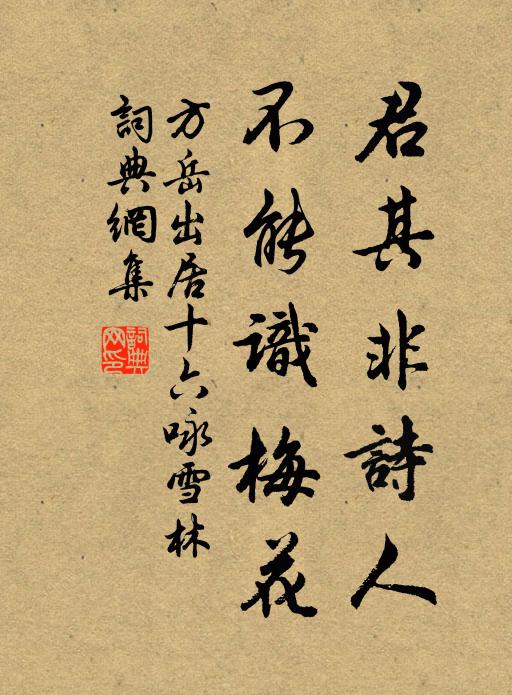 君其非詩人
不能識梅花
方岳出居十六咏雪林
詞典網集
詞典网印